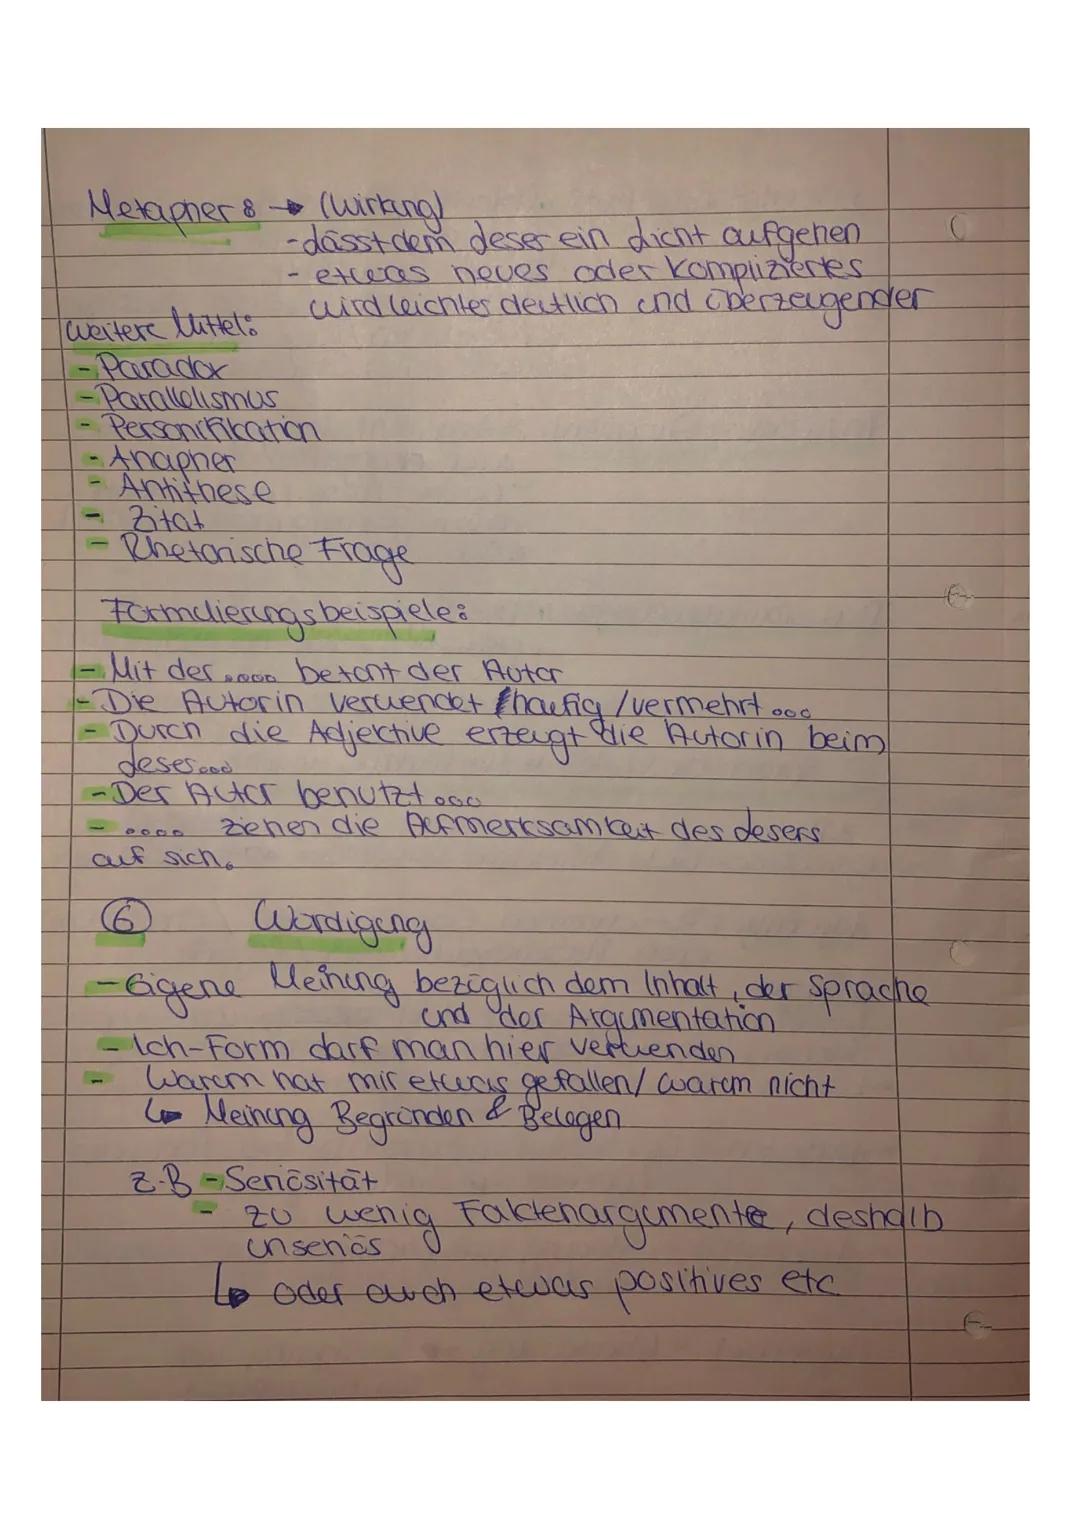 Metapher: → (Wirkung)
- Lässt dem Leser ein Licht aufgehen
- etwas neues oder kompliziertes
wird leichter deutlich und überzeugender
Weitere Mittel:
- Paradox
- Parallelismus
- Personifikation
- Anapher
- Antithese
- Zitat
- Rhetorische Frage
Formulierungsbeispiele:
- Mit der .... betont der Autor
- Die Autorin verwendet häufig / vermehrt ...
- Durch die Adjektive erzeugt die Autorin beim
Leser....
- Der Autor benutzt ...
- .... ziehen die Aufmerksamkeit des Lesers
auf sich.
⑥ Würdigung
- Eigene Meinung bezüglich dem Inhalt, der Sprache
und der Argumentation
- Ich-Form darf man hier verwenden
- Warum hat mir etwas gefallen / warum nicht
↳ Meinung Begründen & Belegen
z.B - Seriösität
- zu wenig Faktenargumente, deshalb
unseriös
↳ oder auch etwas positives etc